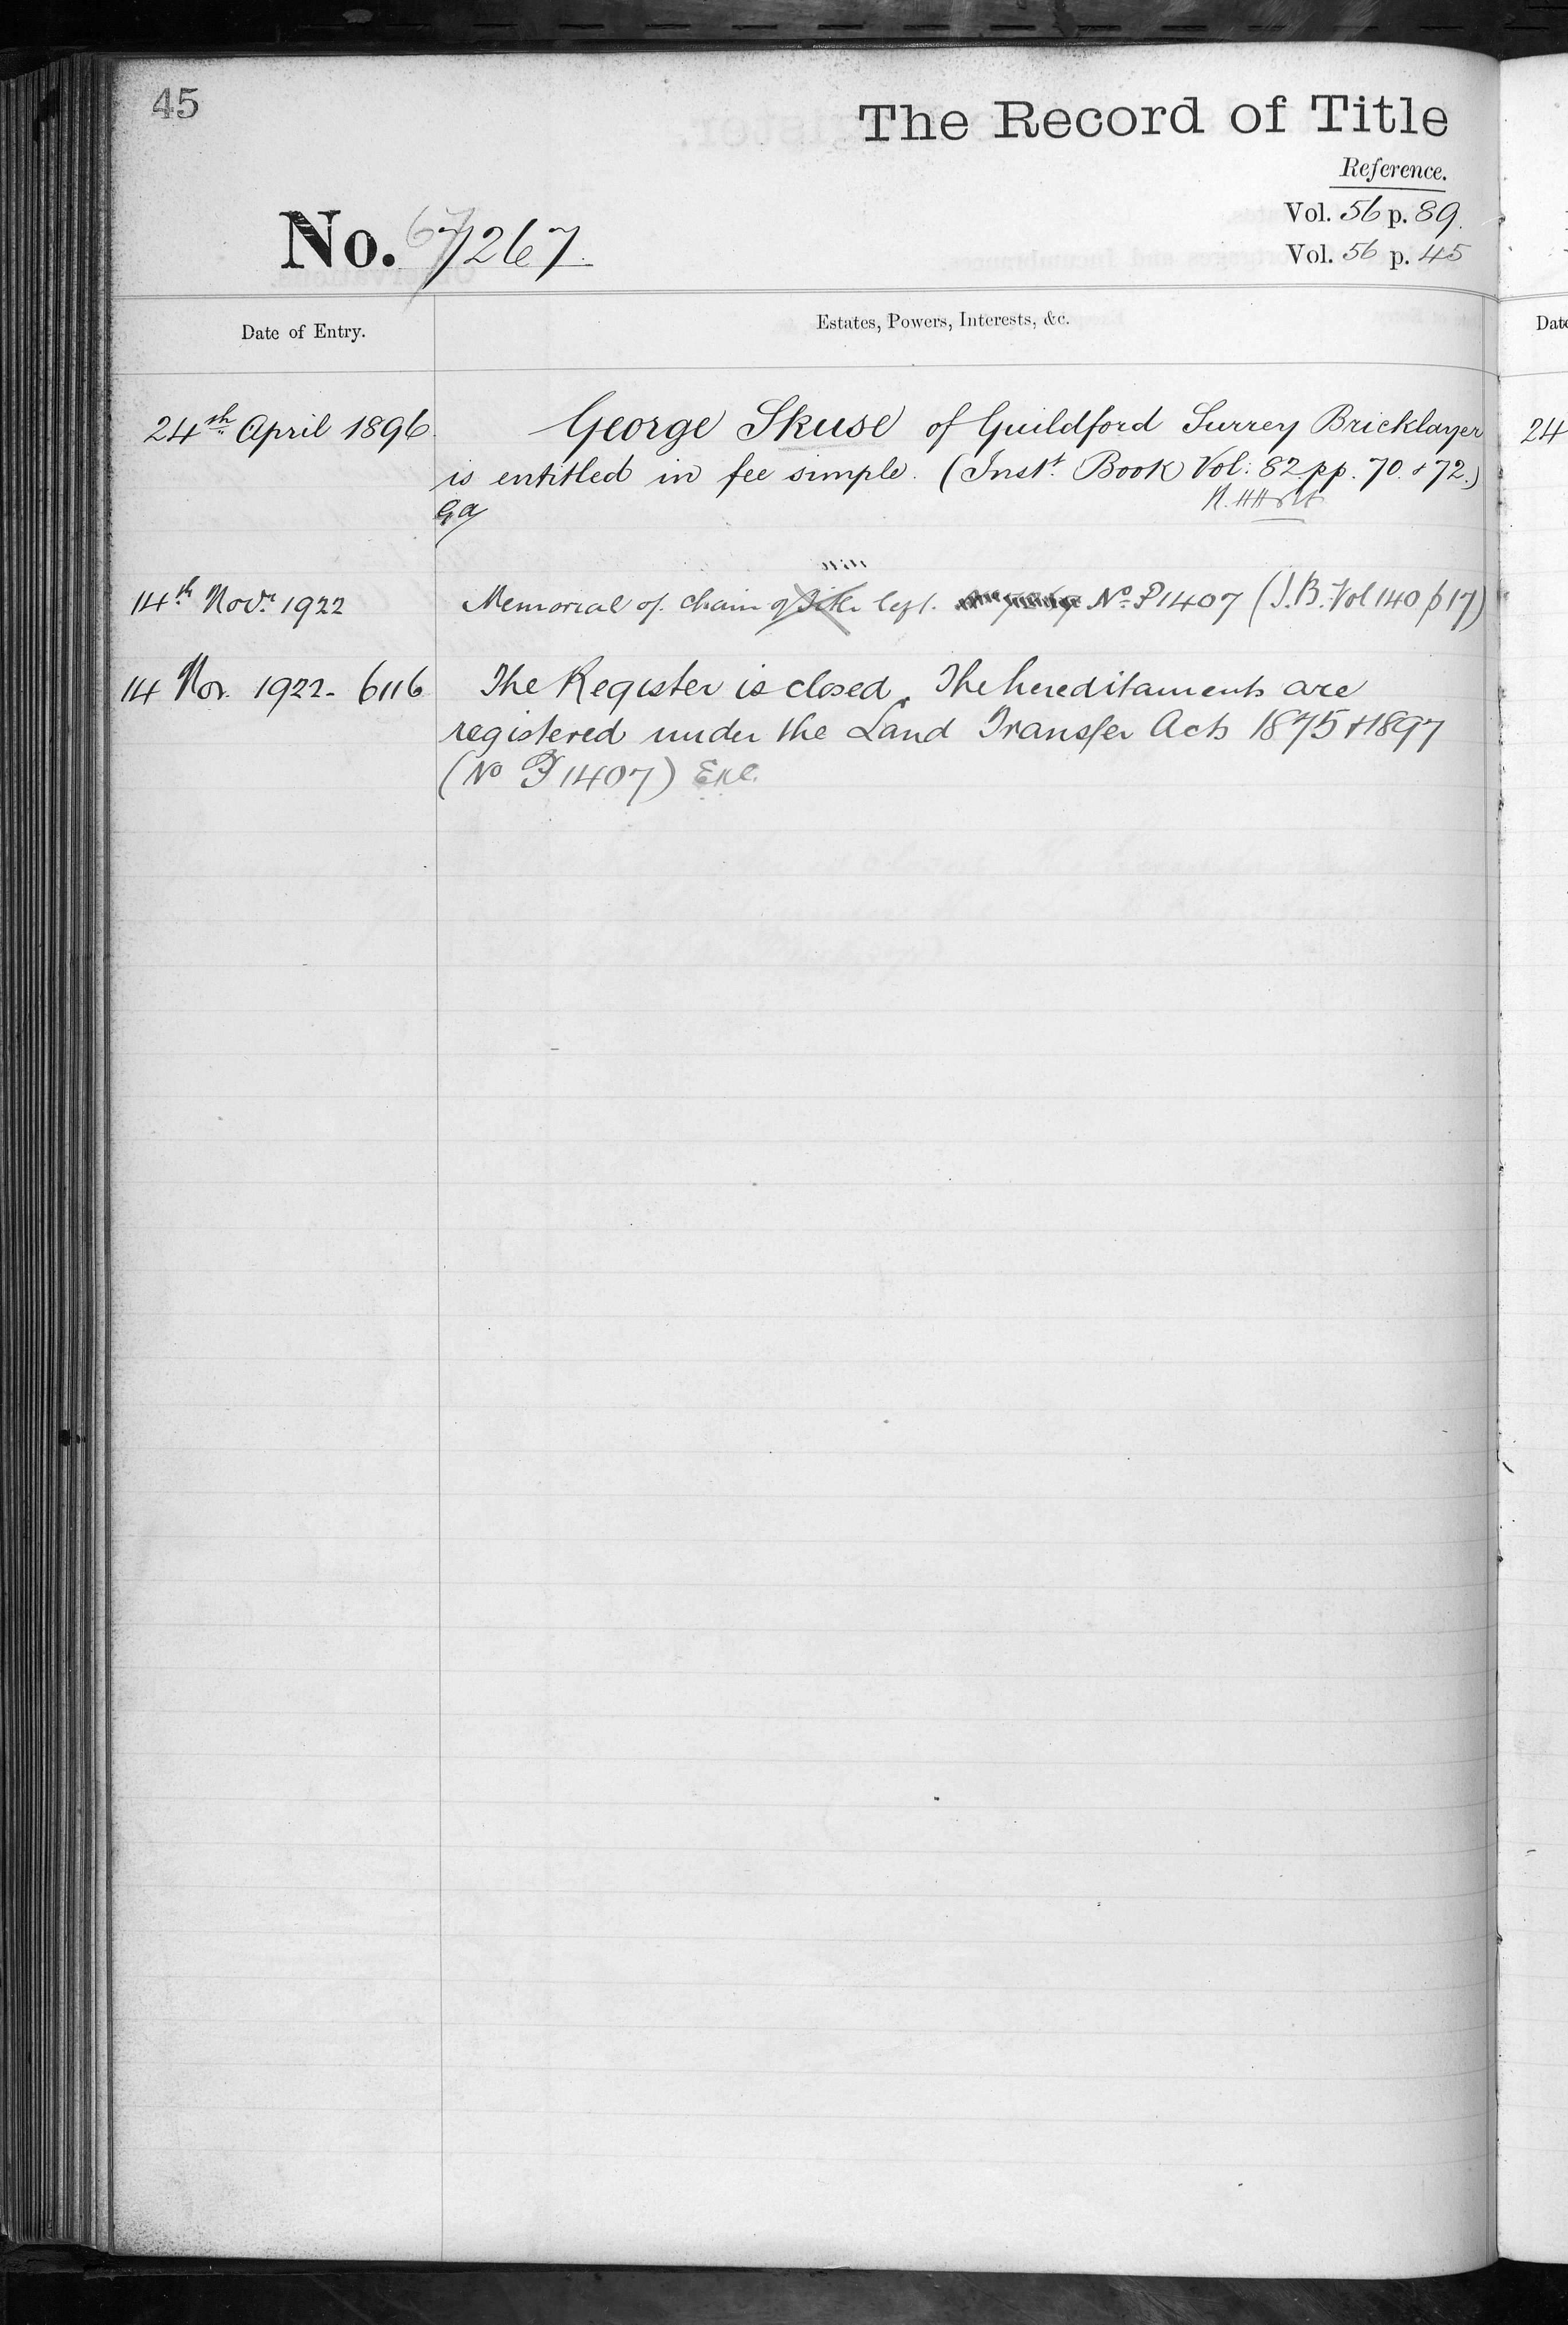 45
The Record of Title
Reference.
Vol. 56 p. 89.
No. 67267.
Vol. 56 p. 45
Date of Entry.
Estates, Powers, Interests, &c.
24th April 1896.
George Skuse of Guildford Surrey Bricklayer
is entitled in fee simple. (Inst. Book Vol: 82 pp. 70. & 72.)
14th Novr. 1922
Memorial of chain of Title left. No. P1407 (I.B. Vol 140 p 17)
14 Nov. 1922 - 6116
The Register is closed. The hereditaments are
registered under the Land Transfer Acts 1875 & 1897
(No P1407)
Date
24